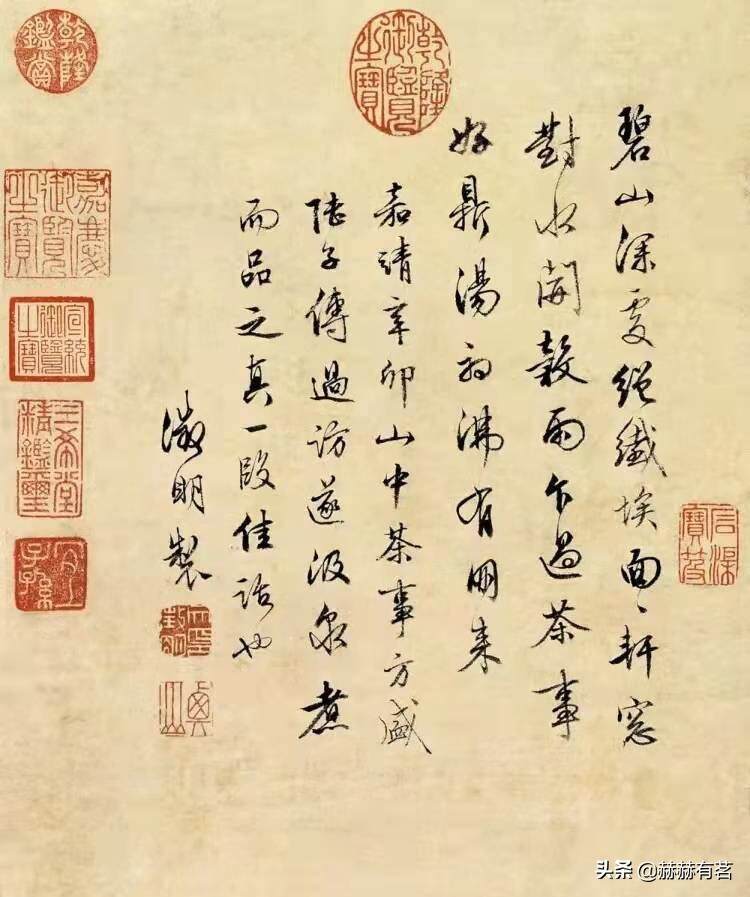 乾隆御覽之寶
碧山深處絕纖埃面〻軒窓
對水開穀雨乍過茶事
好鼎湯初沸有朋來
嘉靖辛卯山中茶事方盛
陸子傳過訪遂汲泉煮
而品之真一段佳話也
徵明製
乾隆鑑賞
嘉慶御覽之寶
宣統御覽之寶
三希堂精鑑璽
宜子孫
头条 @赫赫有茗